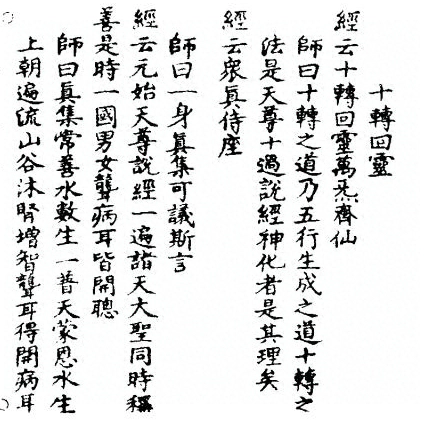 十轉回靈
經云十轉回靈萬炁齊仙
師曰十轉之道乃五行生成之道十轉之
法是天尊十過説經神化者是其理矣
經云衆真侍座
師曰一身真集可議斯言
經云元始天尊説經一遍諸天大聖同時稱
善是時一國男女聾病耳皆開聰
師曰真集常善水數生一普天蒙恩水生
上朝遍流山谷沐腎增智聾耳得開病耳